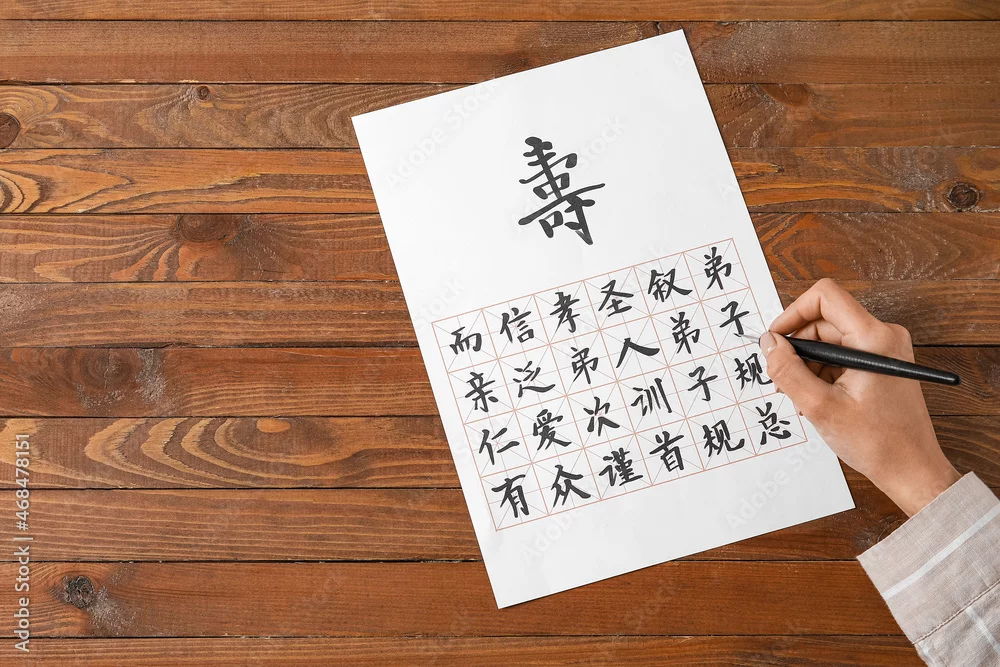 壽
弟子规总
叙弟子规
圣人训首
孝弟次谨
信泛爱众
而亲仁有
Adobe Stock | #468478151